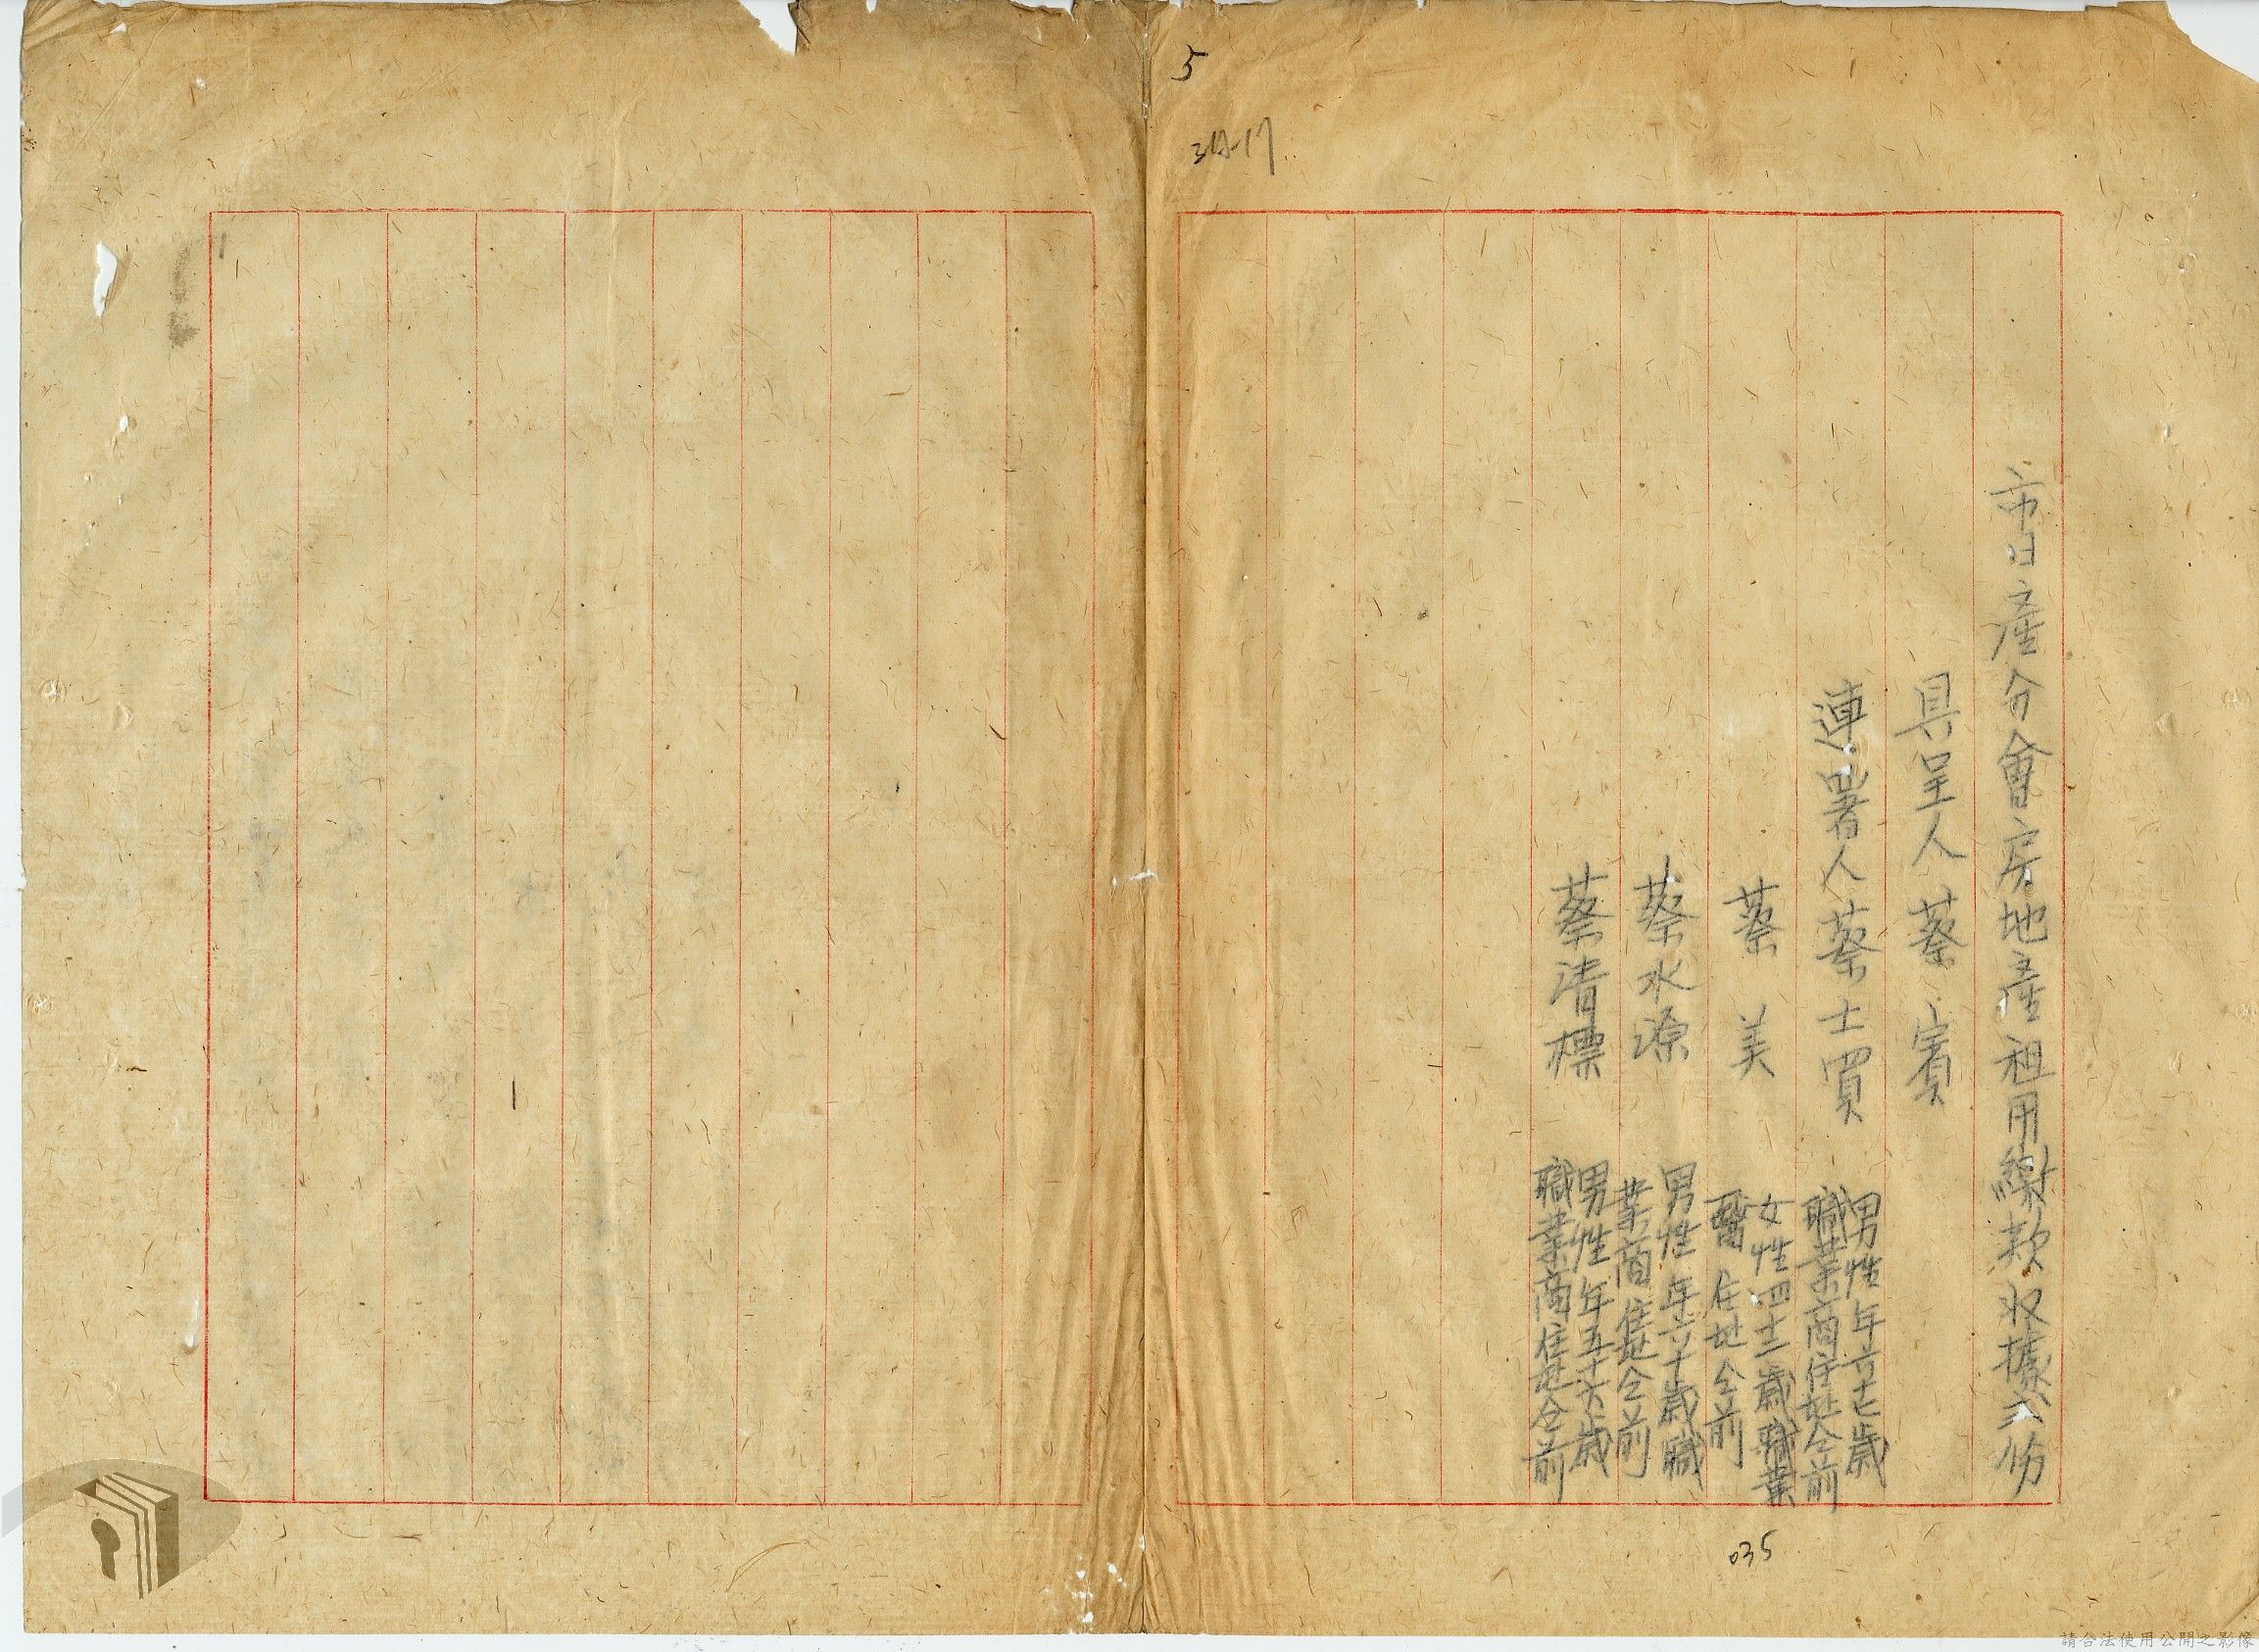 5
市日產分會房地產租用繳款收據弍份
具呈人蔡賓
連署人蔡士買 男性年六十七歲職業商住址仝前
蔡美 女性四十二歲職業醫住址仝前
蔡水源 男性年六十歲職業商住址仝前
蔡清標 男性年五十六歲職業商住址仝前
035
請合法使用公開之影像